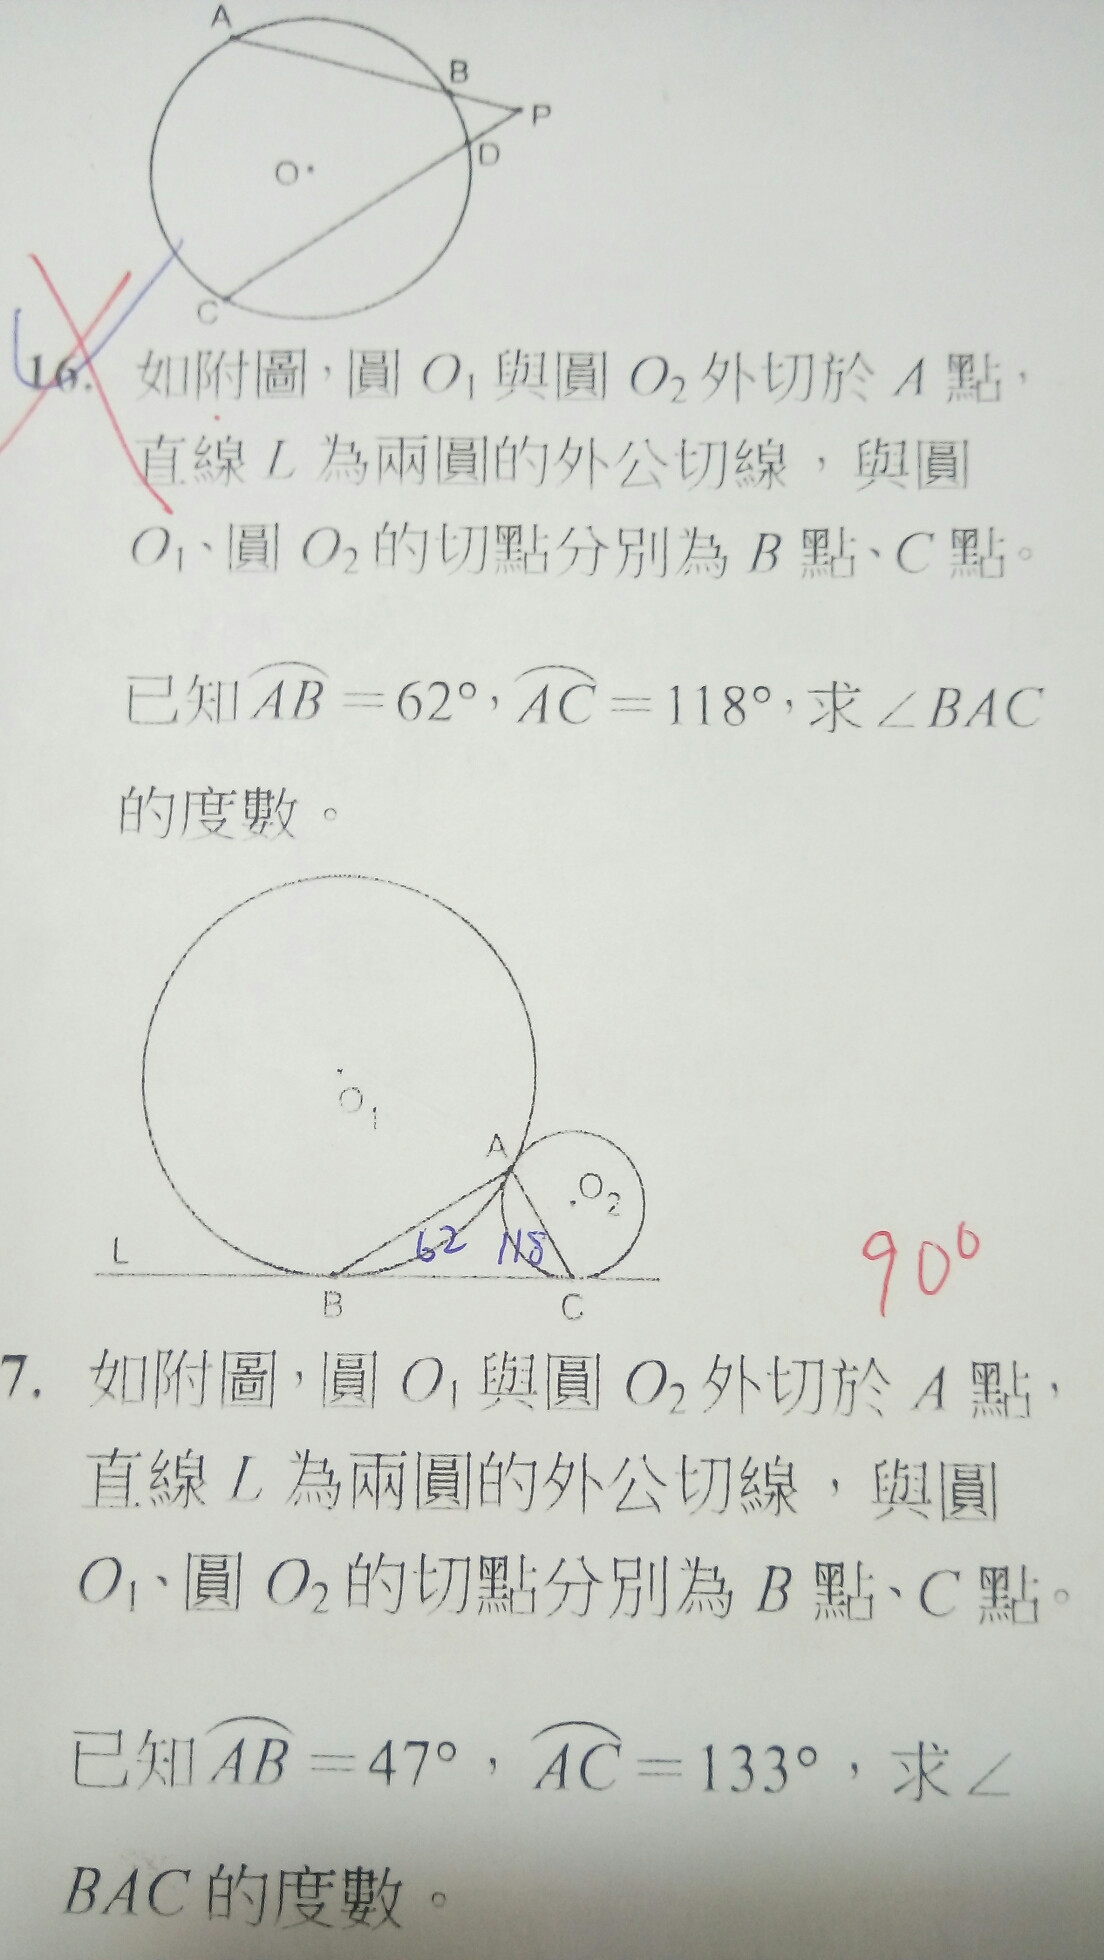 A
B
P
D
O
C
16. 如附圖，圓 O₁ 與圓 O₂ 外切於 A 點，
直線 L 為兩圓的外公切線，與圓
O₁、圓 O₂ 的切點分別為 B 點、C 點。
已知 AB = 62°，AC = 118°，求 ∠BAC
的度數。
O₁
A
O₂
62 118
L
90°
B
C
7. 如附圖，圓 O₁ 與圓 O₂ 外切於 A 點，
直線 L 為兩圓的外公切線，與圓
O₁、圓 O₂ 的切點分別為 B 點、C 點。
已知 AB = 47°，AC = 133°，求 ∠
BAC 的度數。